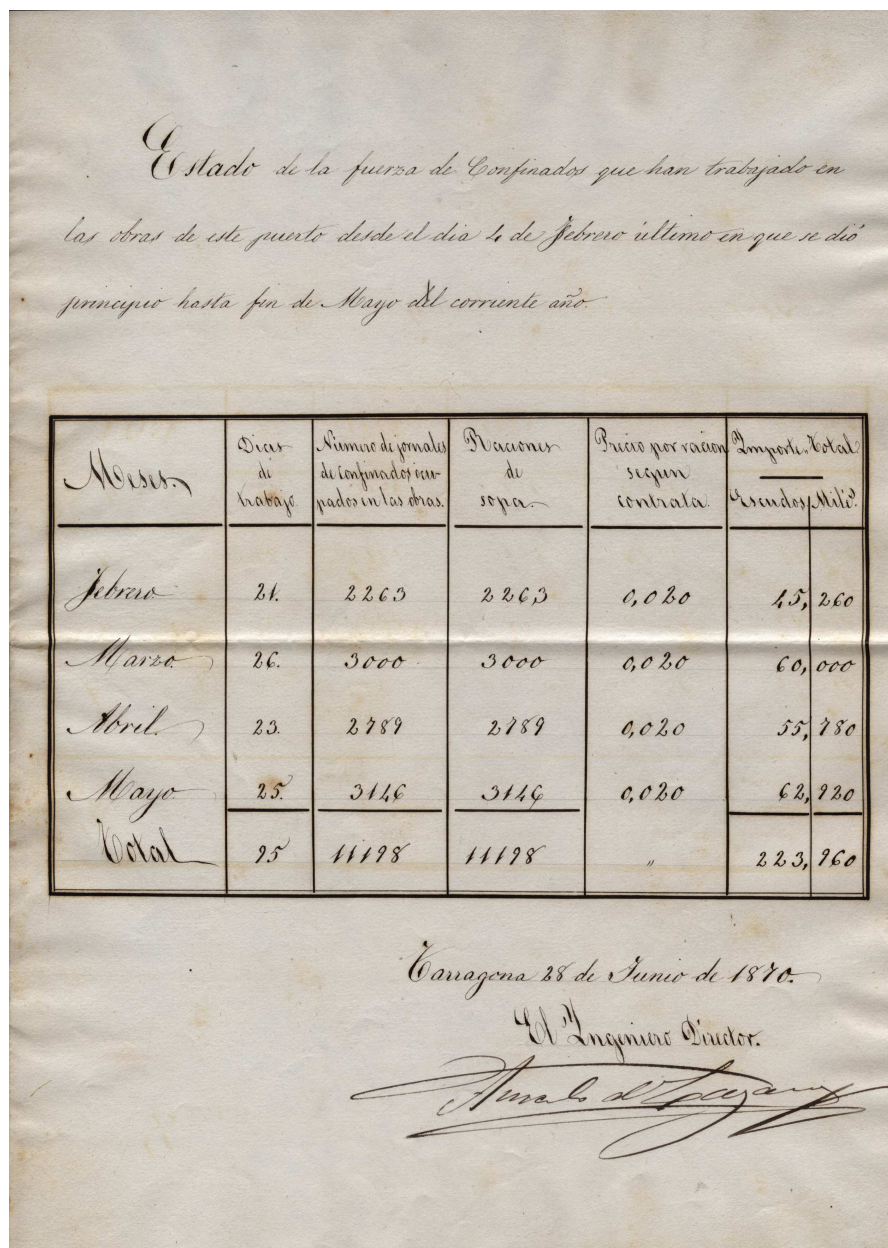 Estado de la fuerza de Confinados que han trabajado en
las obras de este puerto desde el dia 4 de Febrero último en que se dió
principio hasta fin de Mayo del corriente año.
Meses. Dias de trabajo Número de jornales de confinados ocupados en las obras. Raciones de sopa. Precio por racion segun contrata. Importe Total Escudos Milés.
Febrero 21. 2263 2263 0,020 45, 260
Marzo. 26. 3000 3000 0,020 60, 000
Abril. 23. 2789 2789 0,020 55, 780
Mayo. 25. 3146 3146 0,020 62, 920
Total 95 11198 11198 " 223, 960
Tarragona 28 de Junio de 1870.
El Ingeniero Director.